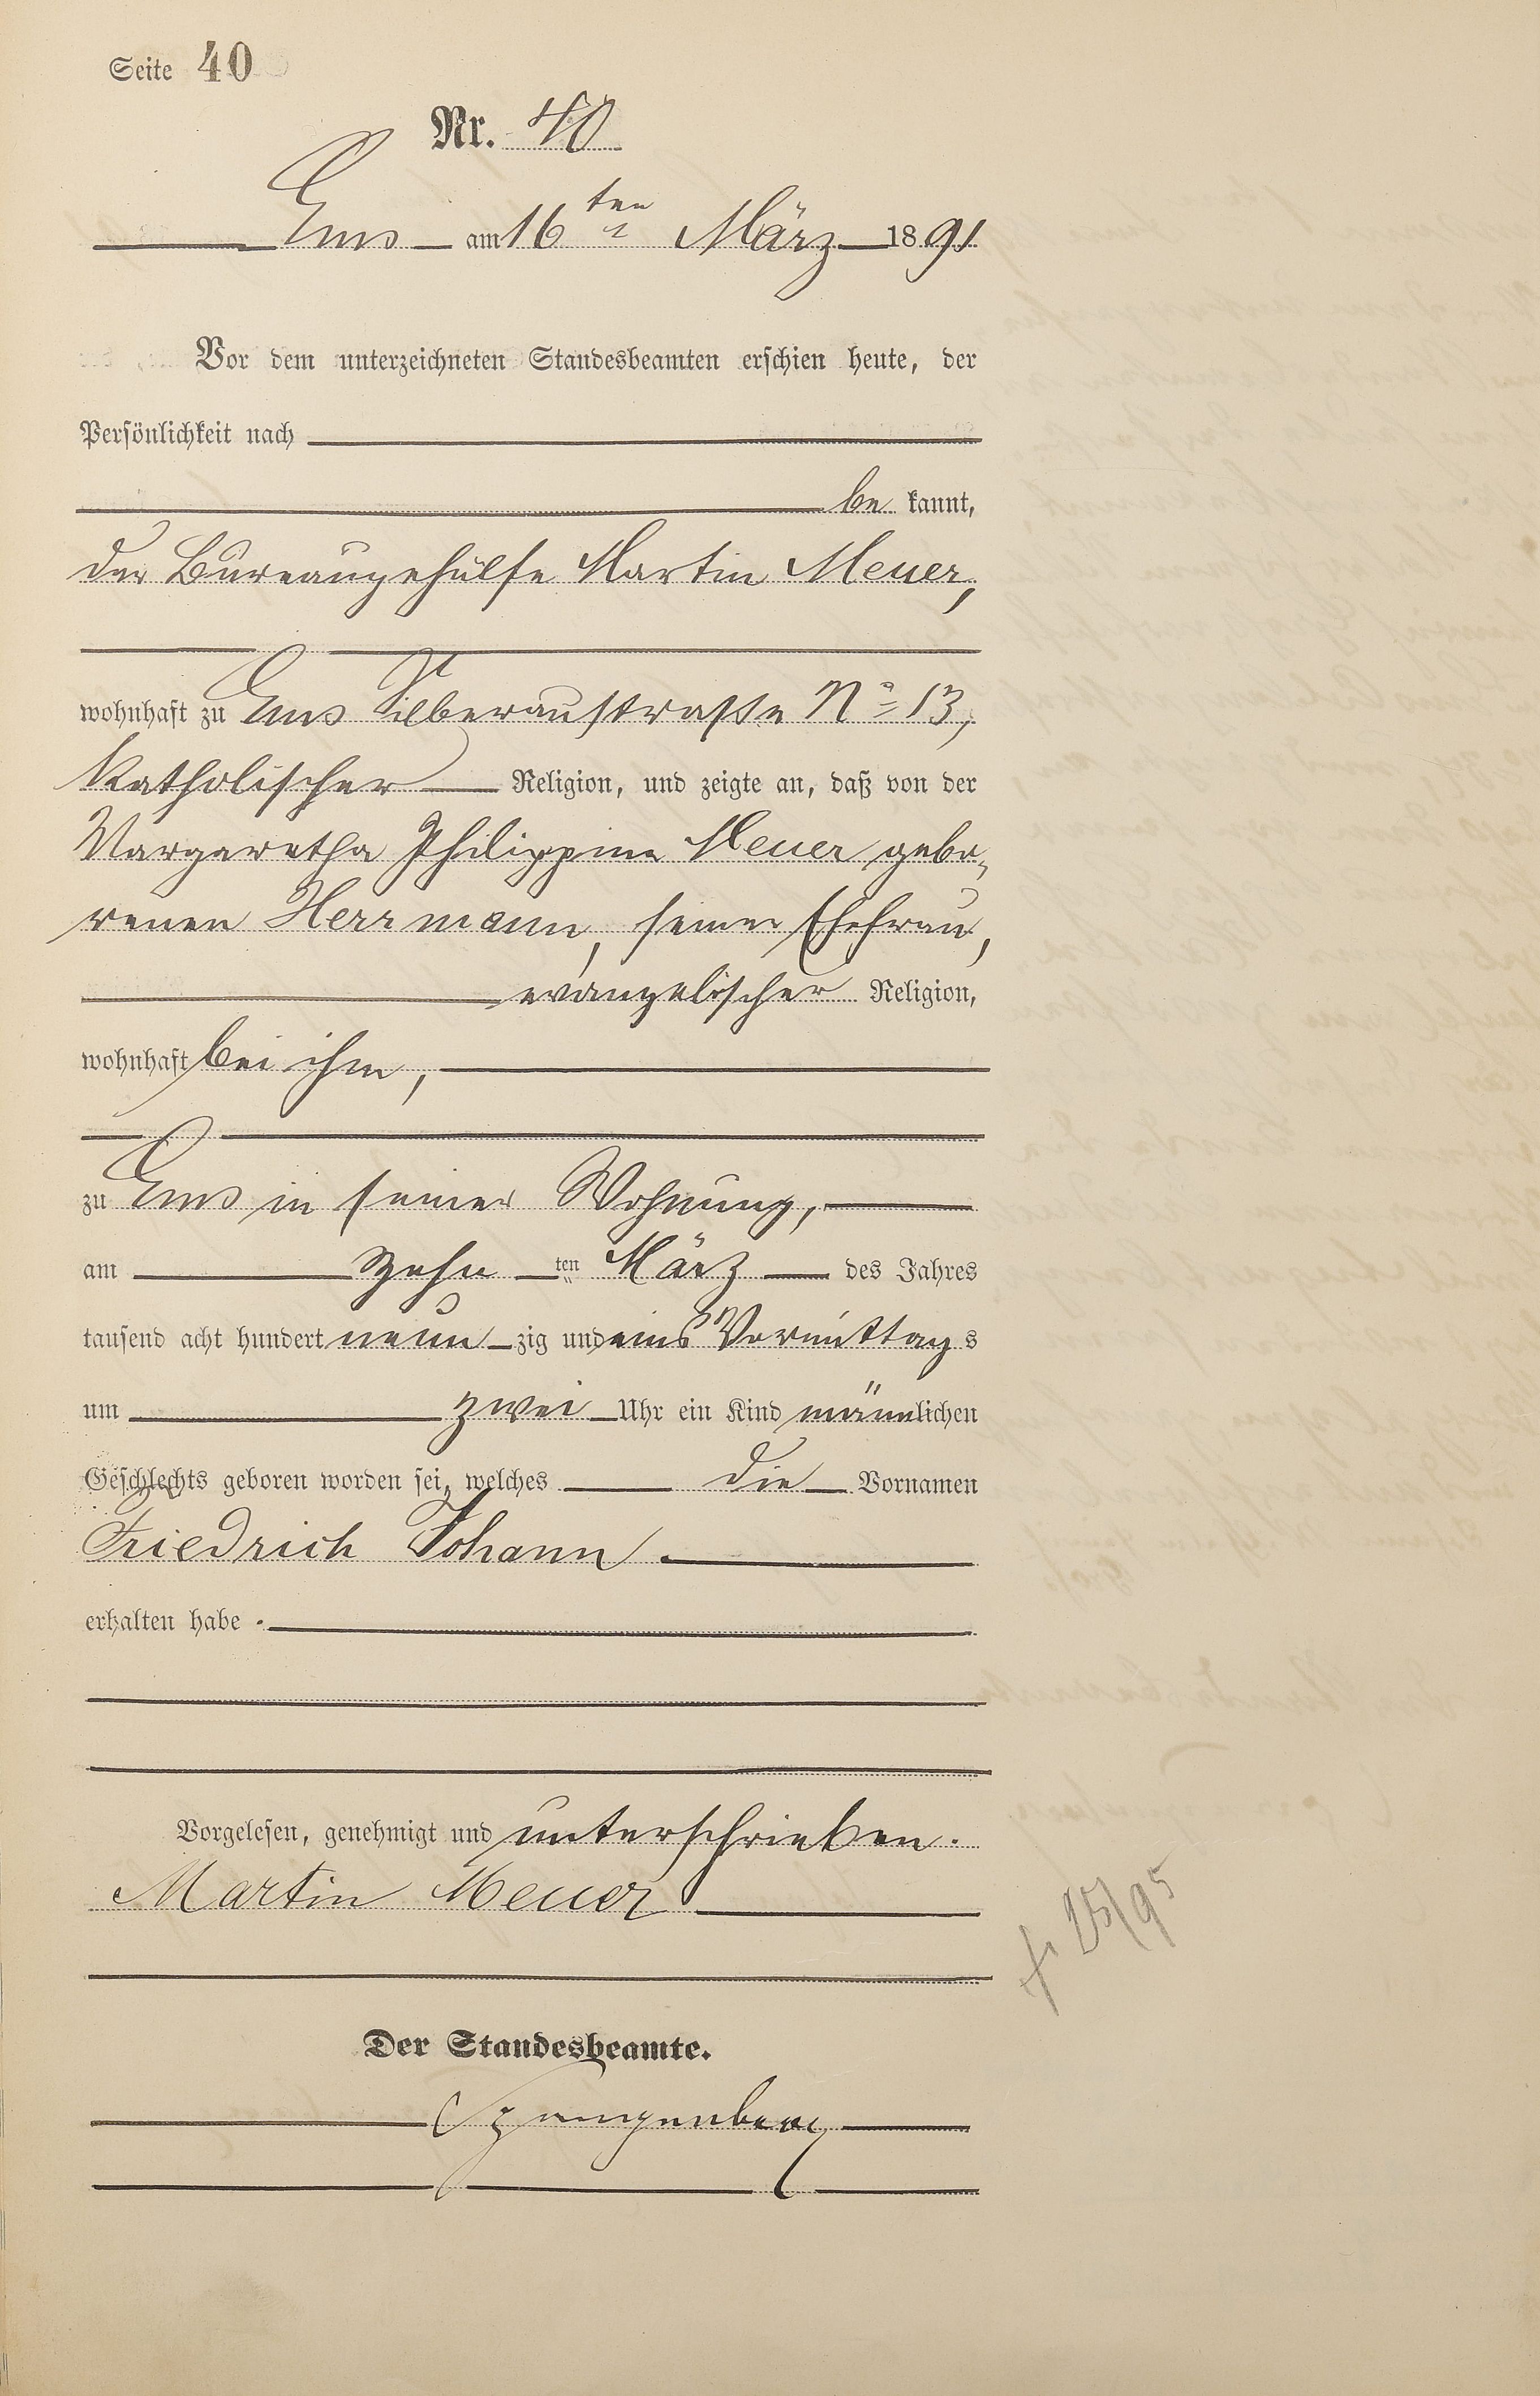 Seite 40
Nr. 40
Ems am 16ten März 1891
Vor dem unterzeichneten Standesbeamten erschien heute, der
Persönlichkeit nach
be kannt,
der Bureaugehülfe Martin Meuer,
wohnhaft zu Ems Silberaustraße No 13,
katholischer Religion, und zeigte an, daß von der
Margaretha Philippine Meuer gebo-
renen Herrmann, seiner Ehefrau,
evangelischer Religion,
wohnhaft bei ihm,
zu Ems in seiner Wohnung,
am zehn ten März des Jahres
tausend acht hundert neun zig und eins Vormittags
um zwei Uhr ein Kind männlichen
Geschlechts geboren worden sei, welches die Vornamen
Friedrich Johann.
erhalten habe.
Vorgelesen, genehmigt und unterschrieben.
Martin Meuer
† 25/95
Der Standesbeamte.
Spangenberg